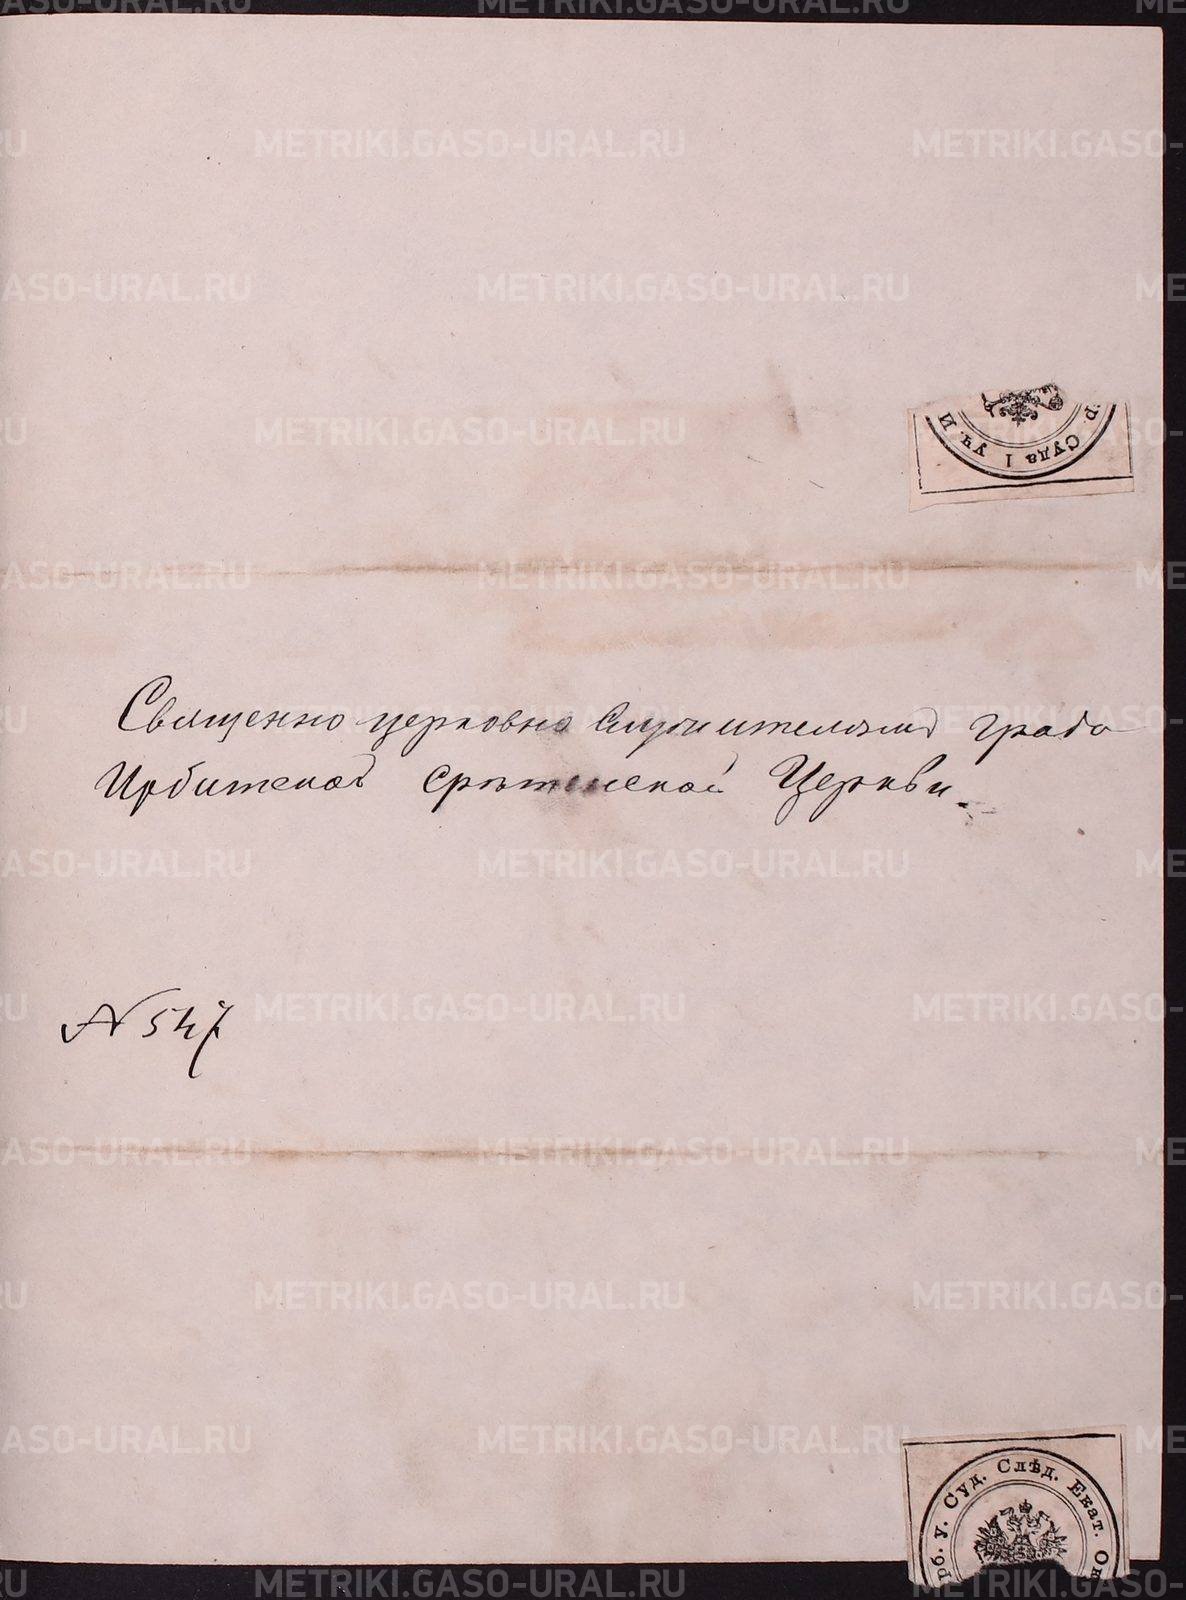 р. Суда 1 уч. И
Священно церковно служителямъ града
Ирбитской срѣтенской Церкви.
№ 547
рб. у. Суд. Слѣд. Екат. Ок
METRIKI.GASO-URAL.RU